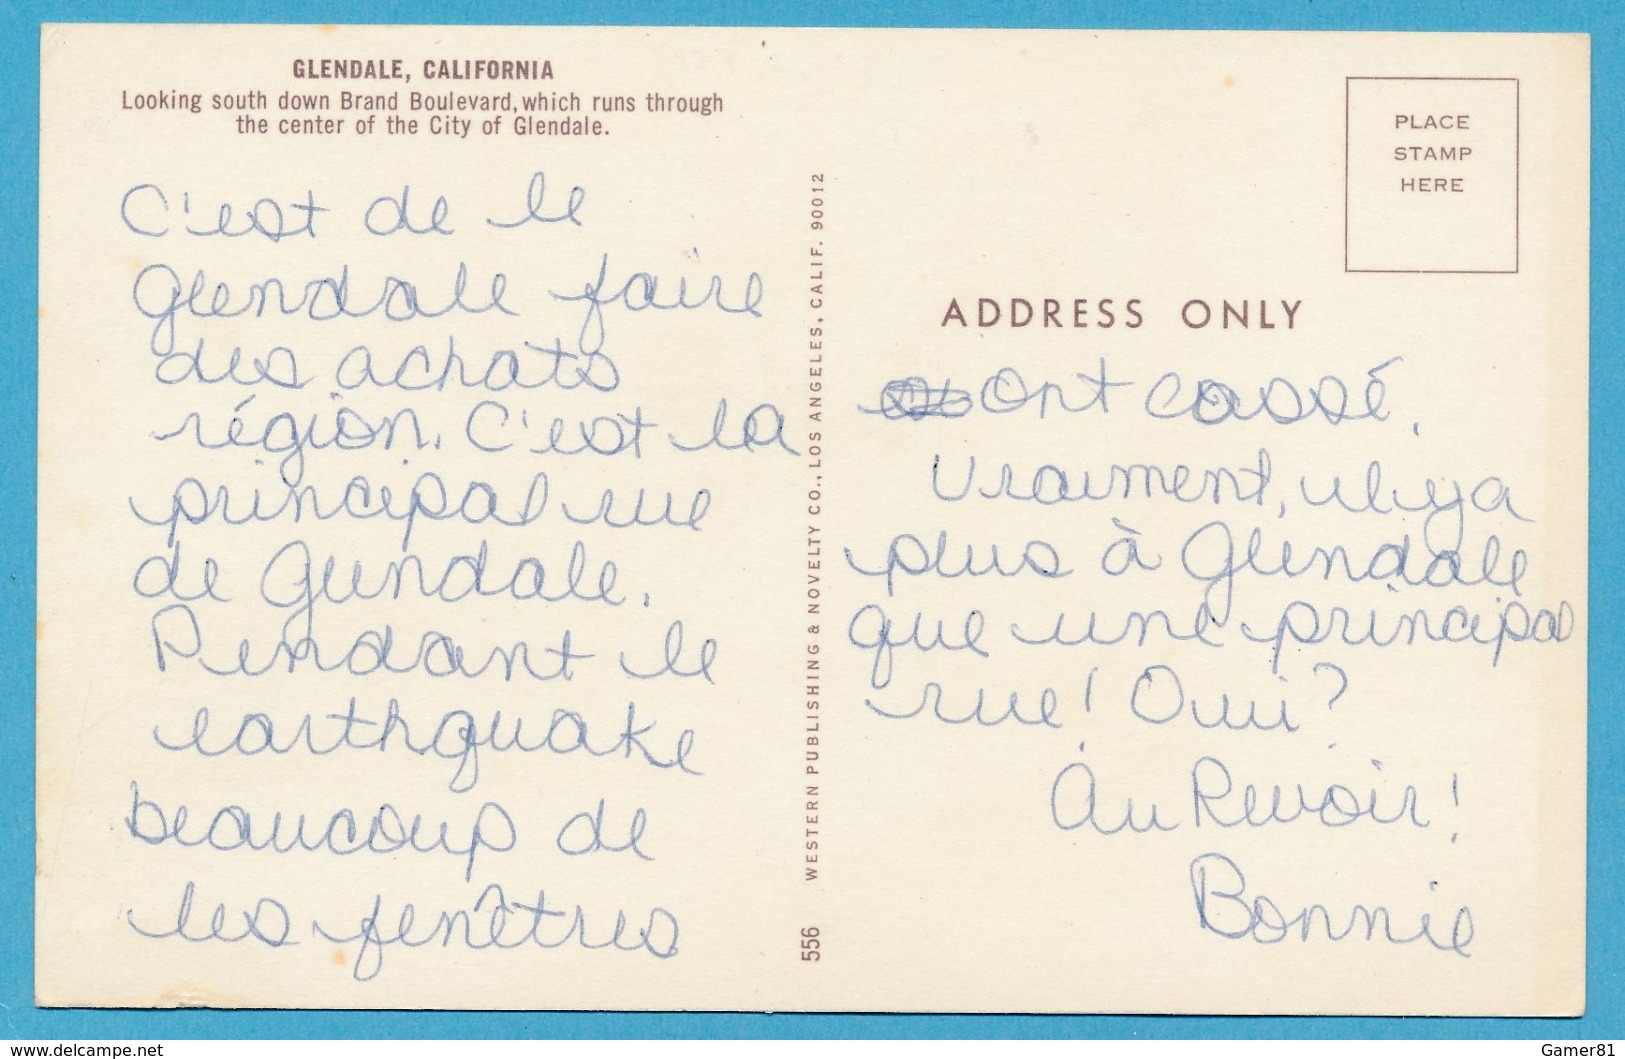 GLENDALE, CALIFORNIA
Looking south down Brand Boulevard, which runs through
the center of the City of Glendale.
C'est de le
Glendale faire
des achats
région. C'est la
principal rue
de Glendale.
Pendant le
earthquake
beaucoup de
les fenêtres
556 WESTERN PUBLISHING & NOVELTY CO., LOS ANGELES, CALIF. 90012
PLACE
STAMP
HERE
ADDRESS ONLY
ont cassé.
Vraiment, il y a
plus à Glendale
que une principal
rue! Oui?
Au Revoir!
Bonnie
www.delcampe.net
Gamer81